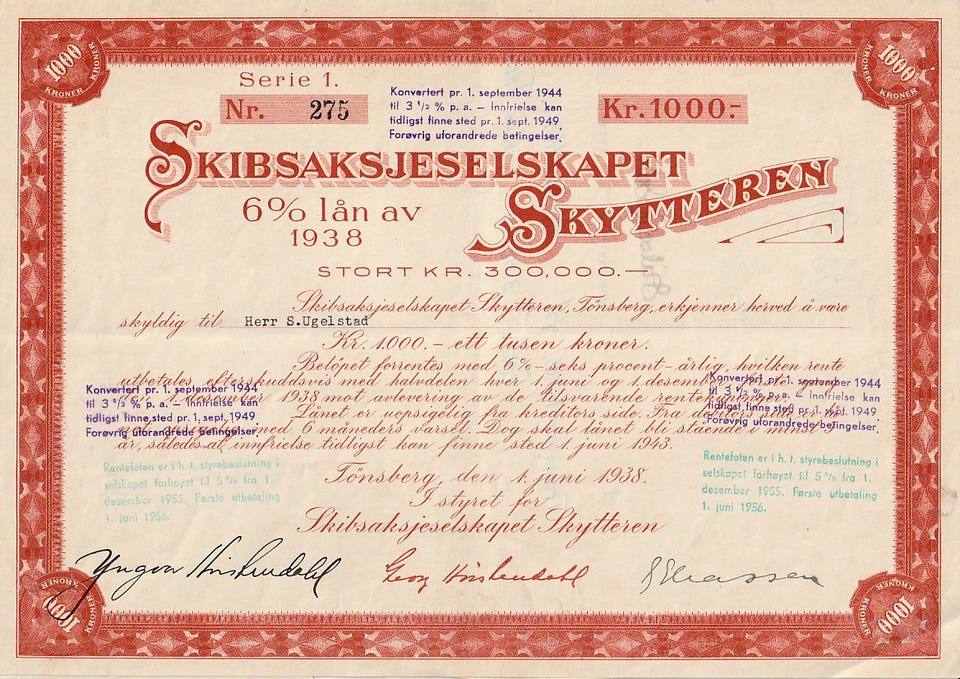 1000 KRONER
1000 KRONER
Serie 1.
Nr. 275
Konvertert pr. 1. september 1944
til 3 1/2 % p. a. – Innfrielse kan
tidligst finne sted pr. 1. sept. 1949
Forøvrig uforandrede betingelser.
Kr. 1000.-
SKIBSAKSJESELSKAPET
SKYTTEREN
6% lån av
1938
STORT KR. 300,000.—
Skibsaksjeselskapet Skytteren, Tönsberg, erkjenner herved å være
skyldig til Herr S.Ugelstad
Kr. 1.000.- ett tusen kroner.
Belöpet forrentes med 6% - seks procent - årlig, hvilken rente
utbetales efterskuddsvis med halvdelen hver 1. juni og 1. desember
1. desember 1938 mot avlevering av de tilsvarende
Lånet er uopsigelig fra kreditors side. Fra debitors
med 6 måneders varsel. Dog skal lånet bli stående i minst
år, således at innfrielse tidligst kan finne sted 1 juni 1943.
Konvertert pr. 1. september 1944
til 3 1/2 % p. a. – Innfrielse kan
tidligst finne sted pr. 1. sept. 1949
Forøvrig uforandrede betingelser.
Konvertert pr. 1. september 1944
til 3 1/2 % p. a. – Innfrielse kan
tidligst finne sted pr. 1. sept. 1949
Forøvrig uforandrede betingelser.
Rentefoten er i h. t. styrebeslutning i
selskapet forhøyet til 5 % fra 1.
desember 1955. Første utbetaling
1. juni 1956.
Rentefoten er i h. t. styrebeslutning i
selskapet forhøyet til 5 % fra 1.
desember 1955. Første utbetaling
1. juni 1956.
Tönsberg, den 1. juni 1938.
I styret for
Skibsaksjeselskapet Skytteren
Yngvar
Georg
1000 KRONER
1000 KRONER